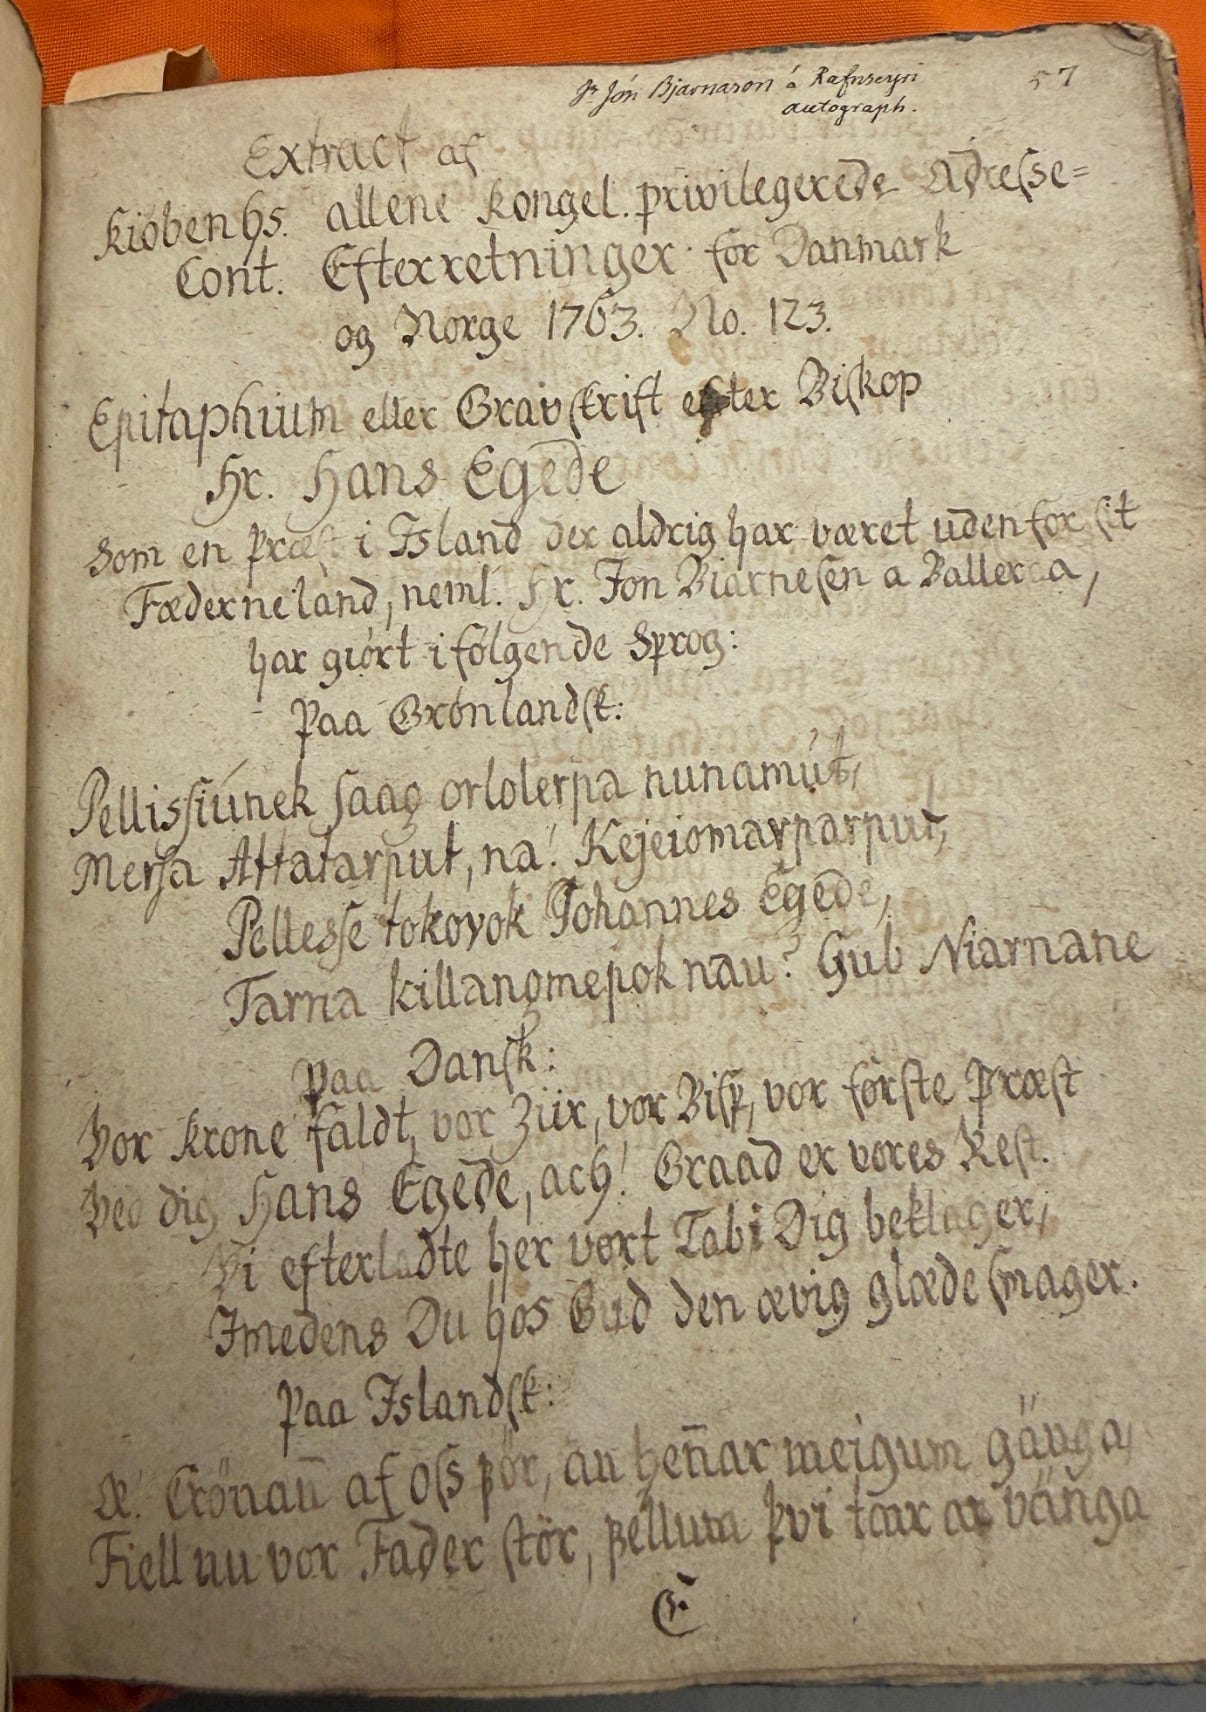 Sr Jón Bjarnason á Rafnseyri
autograph.
57
Extract af
Kiöbenhs. allene kongel. privilegerede Adresse=
Cont. Efterretninger for Danmark
og Norge 1763. No. 123.
Epitaphium eller Gravskrift efter Biskop
Hr. Hans Egede
Som en Præst i Island der aldrig har været udenfor sit
Fæderneland, neml. Hr. Jon Biarnesen a Balleraa,
har giört i fölgende Sprog:
Paa Grönlandsk:
Pellissiúnek saag orlolerpa nunamút,
Mersa Attatarput, na! Kejeiomarparput,
Pellesse tokovok Johannes Egede,
Tarna killangmepok nau? Gub Niarnane
Paa Dansk:
Vor Krone faldt, vor Ziir, vor Bisp, vor förste Præst
Ved dig Hans Egede, ach! Graad er vores Rest.
Vi efterladte her vort Tab i Dig beklager,
Imedens Du hos Gud den ævig glæde smager.
Paa Islandsk:
Æ! Crönan̄ af oss þör, än hen̄ar meigum gänga,
Fiell nu vor Fader stör, þellum þvi tär ä vänga